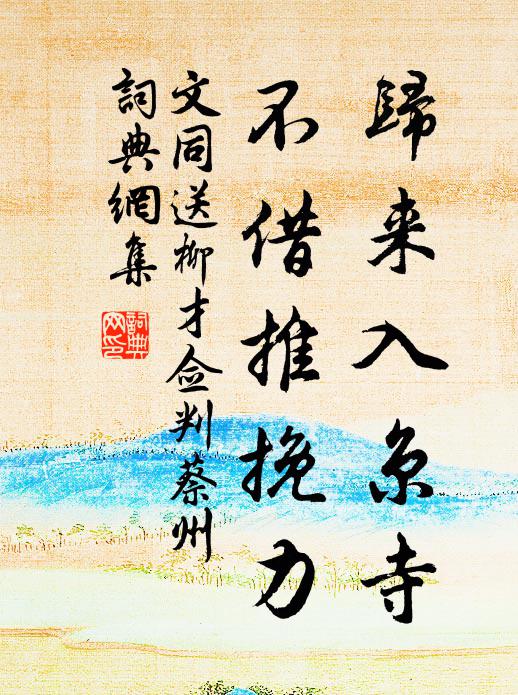 歸来入京寺
不借推挽力
文同送柳才僉判蔡州
詞典網集
詞典
网印